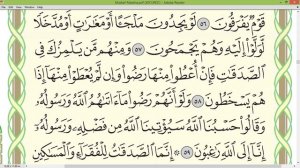 Adobe Reader
قَوْمٌ يَفْرَقُونَ ٥٦ لَوْ يَجِدُونَ مَلْجَـًٔا أَوْ مَغَـٰرَٰتٍ أَوْ مُدَّخَلًا
لَّوَلَّوْا۟ إِلَيْهِ وَهُمْ يَجْمَحُونَ ٥٧ وَمِنْهُم مَّن يَلْمِزُكَ فِى
ٱلصَّدَقَـٰتِ فَإِنْ أُعْطُوا۟ مِنْهَا رَضُوا۟ وَإِن لَّمْ يُعْطَوْا۟ مِنْهَآ إِذَا
هُمْ يَسْخَطُونَ ٥٨ وَلَوْ أَنَّهُمْ رَضُوا۟ مَآ ءَاتَىٰهُمُ ٱللَّهُ وَرَسُولُهُۥ
وَقَالُوا۟ حَسْبُنَا ٱللَّهُ سَيُؤْتِينَا ٱللَّهُ مِن فَضْلِهِۦ وَرَسُولُهُۥٓ
إِنَّآ إِلَى ٱللَّهِ رَٰغِبُونَ ٥٩ ۞ إِنَّمَا ٱلصَّدَقَـٰتُ لِلْفُقَرَآءِ وَٱلْمَسَـٰكِينِ